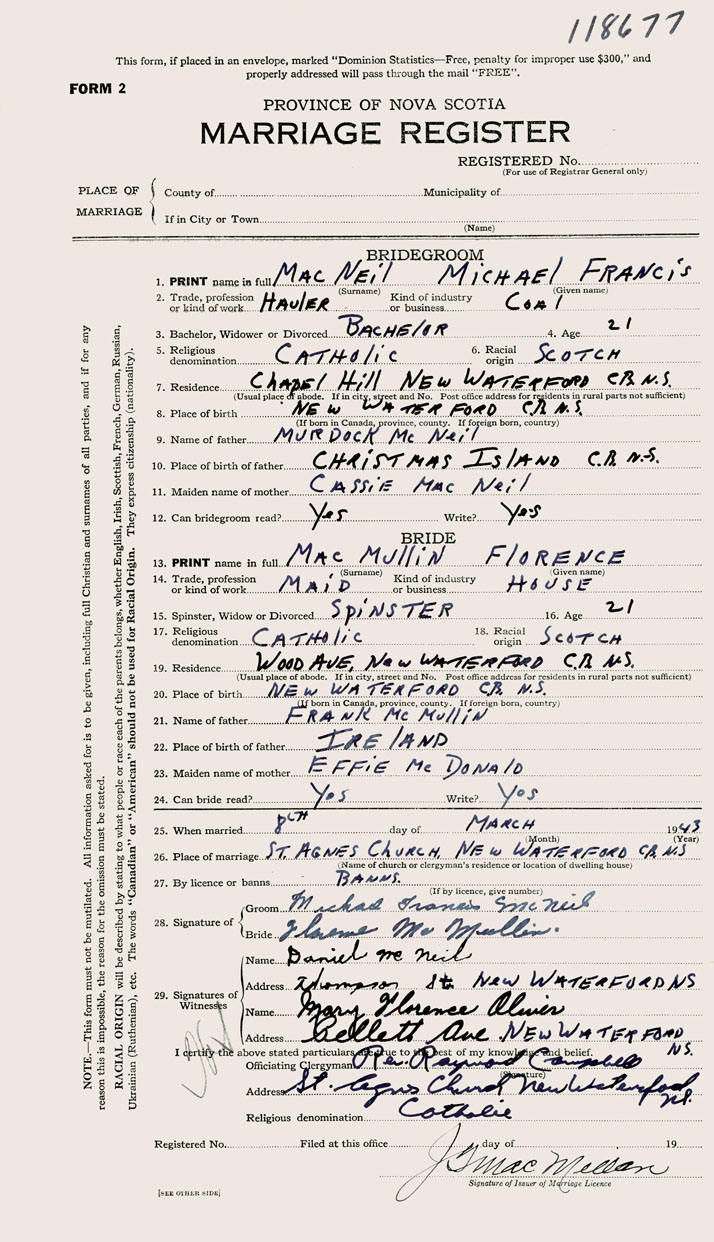 118677
This form, if placed in an envelope, marked "Dominion Statistics—Free, penalty for improper use $300," and
properly addressed will pass through the mail "FREE".
FORM 2
PROVINCE OF NOVA SCOTIA
MARRIAGE REGISTER
REGISTERED No.
(For use of Registrar General only)
PLACE OF MARRIAGE
County of Municipality of
If in City or Town
(Name)
BRIDEGROOM
1. PRINT name in full Mac Neil Michael Francis
(Surname) (Given name)
2. Trade, profession or kind of work Hauler Kind of industry or business Coal
3. Bachelor, Widower or Divorced Bachelor 4. Age 21
5. Religious denomination Catholic 6. Racial origin Scotch
7. Residence Chapel Hill New Waterford C.B. N.S.
(Usual place of abode. If in city, street and No. Post office address for residents in rural parts not sufficient)
8. Place of birth New Waterford C.B. N.S.
(If born in Canada, province, county. If foreign born, country)
9. Name of father Murdock Mc Neil
10. Place of birth of father Christmas Island C.B. N.S.
11. Maiden name of mother Cassie Mac Neil
12. Can bridegroom read? Yes Write? Yes
BRIDE
13. PRINT name in full Mac Mullin Florence
(Surname) (Given name)
14. Trade, profession or kind of work Maid Kind of industry or business House
15. Spinster, Widow or Divorced Spinster 16. Age 21
17. Religious denomination Catholic 18. Racial origin Scotch
19. Residence Wood Ave, New Waterford C.B. N.S.
(Usual place of abode. If in city, street and No. Post office address for residents in rural parts not sufficient)
20. Place of birth New Waterford C.B. N.S.
(If born in Canada, province, county. If foreign born, country)
21. Name of father Frank Mc Mullin
22. Place of birth of father Ireland
23. Maiden name of mother Effie Mc Donald
24. Can bride read? Yes Write? Yes
25. When married 8th day of March 1943
(Month) (Year)
26. Place of marriage St. Agnes Church, New Waterford C.B. N.S
(Name of church or clergyman's residence or location of dwelling house)
27. By licence or banns Banns.
(If by licence, give number)
28. Signature of
Groom Michael Francis McNeil
Bride Florence Mc Mullin.
29. Signatures of Witnesses
Name Daniel Mc Neil
Address Thompson St New Waterford NS
Name Mary Florence Oliver
Address Bellett Ave. New Waterford NS.
I certify the above stated particulars are true to the best of my knowledge and belief.
Officiating Clergyman Rev. Raymond Campbell
(Signature)
Address St. Agnes Church New Waterford NS.
Religious denomination Catholic
Registered No. Filed at this office day of 19
J S Mac Mellan
Signature of Issuer of Marriage Licence
[SEE OTHER SIDE]
NOTE.—This form must not be mutilated. All information asked for is to be given, including full Christian and surnames of all parties, and if for any
reason this is impossible, the reason for the omission must be stated.
RACIAL ORIGIN will be described by stating to what people or race each of the parents belongs, whether English, Irish, Scottish, French, German, Russian,
Ukrainian (Ruthenian), etc. The words "Canadian" or "American" should not be used for Racial Origin. They express citizenship (nationality).